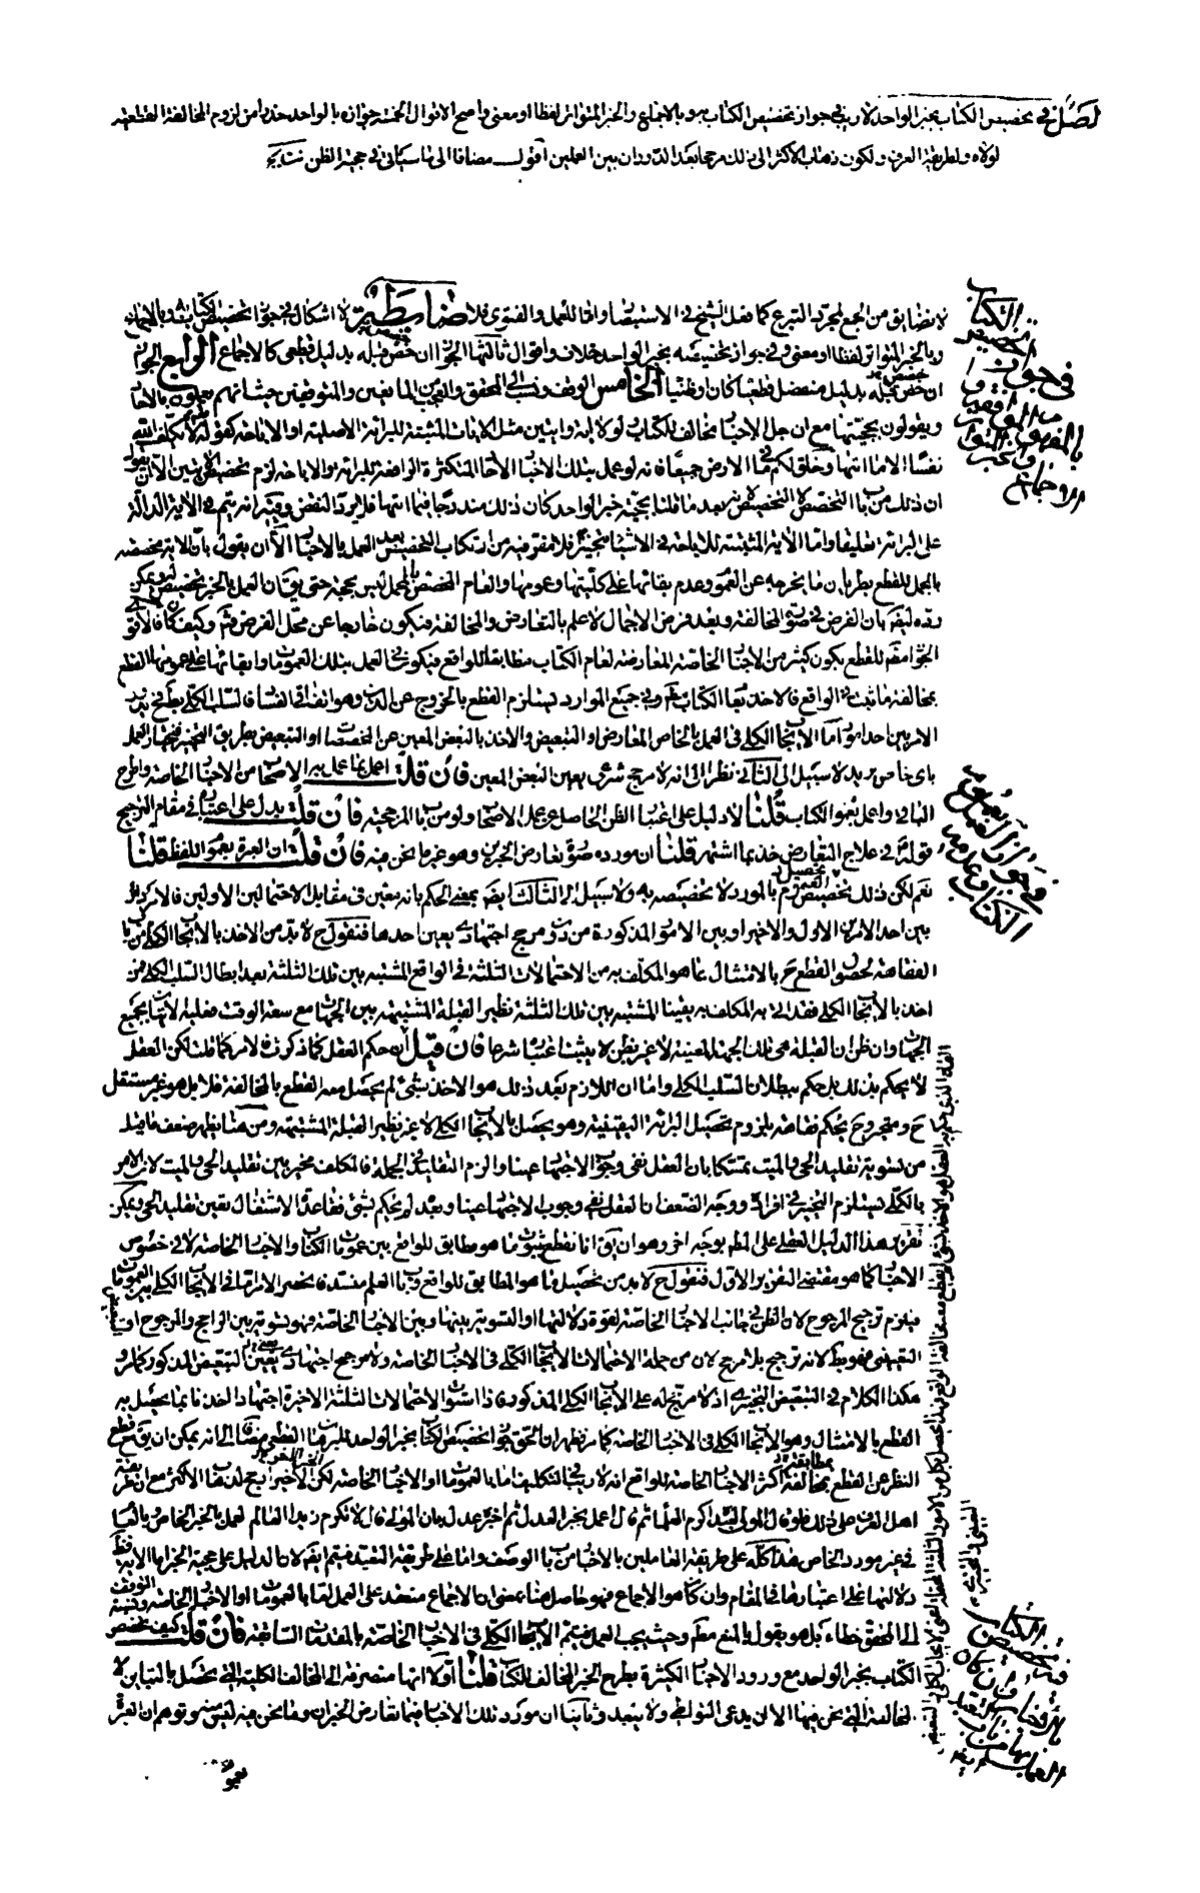 فصل في تخصيص الكتاب بخبر الواحد لا ريب في جواز تخصيص الكتاب به وبالاجماع والخبر المتواتر لفظا او معنى واصح الاقوال الخمسة جوازه بالواحد حذرا من لزوم المخالفة القطعية
لولاه ولطريقة العرف ولكون ذهاب الاكثر الى ذلك مرجحا بعد الدوران بين العلمين اقول مضافا الى ما سيأتي في حجية الظن
لا نضايق من الجمع لمجرد التبرع كما فعل الشيخ في الاستبصار واما للعمل والفتوى فلا ضابطة لا اشكال في جواز تخصيص الكتاب به وبالاجماع
وبالخبر المتواتر لفظا او معنى وفي جواز تخصيصه بخبر الواحد خلاف واقوال ثالثها الجواز ان خص قبله بدليل قطعي كالاجماع الرابع الجواز
ان خص قبله بدليل منفصل قطعيا كان او ظنيا الخامس الوقف ونسب الى المحقق والعجب من المانعين والمتوقفين حيث انهم يعملون بالاخبار
ويقولون بحجيتها مع ان جل الاخبار مخالف للكتاب ولو لاية او ايتين مثل الايات المثبتة للبرائة الاصلية او الاباحة كقوله لا يكلف الله
نفسا الا ما اتيها وخلق لكم ما في الارض جميعا فانه لو عمل بتلك الاخبار الاحاد المتكثرة الرافعة للبرائة والاباحة لزم تخصيص الايتين
ان ذلك من باب التخصص لا التخصيص لانه بعد ما قلنا بحجية خبر الواحد كان ذلك مندرجا فيما اتيها فلا يرد النقض وفيه انه يتم في الاية الدالة
على البرائة تعليقا واما الاية المثبتة للاباحة في الاشياء تنجيزا فلا مفر فيه من ارتكاب التخصيص بعد العمل بالاخبار الا ان يقول بان الاية مخصصة
بالمجمل للقطع بطريان ما يخرجه عن العموم وعدم بقائها على كليتها وعمومها والعام المخصص بالمجمل ليس بحجة حتى يق ان العمل بالخبر تخصيص له ويمكن
الجواز مقدم للقطع بكون كثير من الاخبار الخاصة المعارضة لعام الكتاب مطابقا للواقع فيكون في العمل بتلك العمومات وابقائها على عمومها القطع
بمخالفة ما ثبت في الواقع فالاخذ بعام الكتاب في جميع الموارد يستلزم القطع بالخروج عن الدين وهو اتفاقي الفساد فالسلب الكلي بط فح يدور
الامر بين احد امور اما الايجاب الكلي في العمل بالخاص المعارض والتبعيض والاخذ بالبعض المعين عن المخصصات او التبعيض بطريق التخيير فيختار العمل
باي خاص يريد لا سبيل الى الثاني نظرا الى انه لا مرجح شرعي يعين البعض المعين فان قلت اعمل بما عمل به الاصحاب من الاخبار الخاصة واطرح
الباقي واعمل بعموم الكتاب قلنا لا دليل على اعتبار الظن الحاصل من عمل الاصحاب ولو من باب المرجحية فان قلت يدل على اعتباره في مقام الترجيح
قوله في علاج التعارض خذ بما اشتهر قلنا ان مورده صورة تعارض الخبرين وهو غير ما نحن فيه فان قلت ان العبرة بعموم اللفظ قلنا
نعم لكن ذلك تخصيص العموم بالمورد لا تخصيصه به ولا سبيل الى الثالث ايضا بمعنى الحكم بانه معين في مقابل الاحتمالين الاولين فالامر دائر
بين احد الامرين الاول والاخير او بين الامور المذكورة من دون مرجح اجتهادي يعين احدها فنقول ح لا بد من الاخذ بالايجاب الكلي من باب
الفقاهة لحصول القطع ح بالامتثال عما هو المكلف به من الاحتمالات الثلثة في الواقع المشتبه بين تلك الثلثة بعد ابطال السلب الكلي فمن
اخذ بالايجاب الكلي فقد اتى بالمكلف به يقينا المشتبه بين تلك الثلثة نظير القبلة المشتبهة بين الجهات مع سعة الوقت فعليه الاتيان بجميع
الجهات وان ظن ان القبلة هي تلك الجهة المعينة لا غير بظن لم يثبت اعتباره شرعا فان قيل ان حكم العقل كما ذكرت والامر كما قلت لكن العقل
لا يحكم بذلك بل حكم ببطلان السلب الكلي واما ان اللازم بعد ذلك هو الاخذ بشئ لم يحصل معه القطع بالمخالفة فلا بل هو غير مستقل
ح ومع وجوح يحكم فقاهة بلزوم تحصيل البرائة اليقينية وهو يحصل بالايجاب الكلي لا غير نظير القبلة المشتبهة ومن هنا يظهر ضعف ما قيل
من تسوية تقليد الحي والميت تمسكا بان العقل نفى وجوب الاجتهاد عينا والزم التقليد في الجملة فالمكلف مخير بين تقليد الحي والميت لان الامر
بالكلي يستلزم التخيير في افراده ووجه الضعف ان العقل نفى وجوب الاجتهاد عينا وبعد لم يحكم بشئ فقاعدة الاشتغال تعين تقليد الحي ويمكن
تقرير هذا الدليل العقلي على المط بوجه اخر وهو ان يق انا نقطع بثبوت ما هو مطابق للواقع بين عمومات الكتاب والاخبار الخاصة لا في خصوص
الاخبار كما هو مقتضى التقرير الاول فنقول ح لا بد من تحصيل ما هو المطابق للواقع وباب العلم منسد فانحصر الامر اما في الايجاب الكلي في العمومات
فيلزم ترجيح المرجوح لان الظن في جانب الاخبار الخاصة لقوة دلالتها او التسوية بينها وبين الاخبار الخاصة فهو تسوية بين الراجح والمرجوح او
التبعيض فهو بط لانه ترجيح بلا مرجح لان من جملة الاحتمالات الايجاب الكلي في الاخبار الخاصة ولا مرجح اجتهادي يعين التبعيض المذكور كما مر و
هكذا الكلام في التبعيض التخييري اذ لا مرجح له على الايجاب الكلي المذكور فاذا استوت الاحتمالات الثلثة الاخيرة اجتهادا اخذنا بما يحصل به
القطع بالامتثال وهو الايجاب الكلي في الاخبار الخاصة كما مر فظهر ان الحق جواز تخصيص الكتاب بخبر الواحد مضافا الى انه يمكن ان يق مع قطع
النظر عن القطع بمخالفة اكثر الاخبار الخاصة للواقع انه لا ريب في التكليف اما بالعمومات او الاخبار الخاصة لكن الاخير ارجح
اهل العرف على ذلك فلو قال المولى لعبده اكرم العلماء ثم قال اعمل بخبر العدل ثم اخبر عدل بان المولى قال لا تكرم زيدا العالم لعمل بالخبر الخاص وبالعام
في غير مورد الخاص هذا كله على طريقة العاملين بالاخبار من باب الوصف واما على طريقة التعبد فيتم ايضا لان الدليل على حجية الخبر
دلالتها على اعتبارها في المقام وان كان هو الاجماع فهو حاصل هنا بمعنى ان الاجماع منعقد على العمل اما بالعمومات او الاخبار الخاصة ونسبة التوقف
الى المحقق خطاء بل هو يقول بالمنع وحيث يجب العمل فيتم الايجاب الكلي في الاخبار الخاصة بالمقدمات السابقة فان قلت كيف تخصص
الكتاب بخبر الواحد مع ورود الاخبار الكثيرة بطرح الخبر المخالف للكتاب قلنا اولا انها منصرفة الى المخالفة الكلية التي تحصل بالتباين لا
المخالفة التي نحن فيها الا ان يدعى التواطي ولا يبعد وثانيا ان مورد تلك الاخبار فيما تعارض الخبران وما نحن فيه ليس منه وتوهم ان العبرة
بعموم
في جواز تخصيص الكتاب
بالمفهوم الموافق
والاجماع وبخبر المتواتر
في جواز العمل بعموم
الكتاب وعدمه
في تخصيص الكتاب